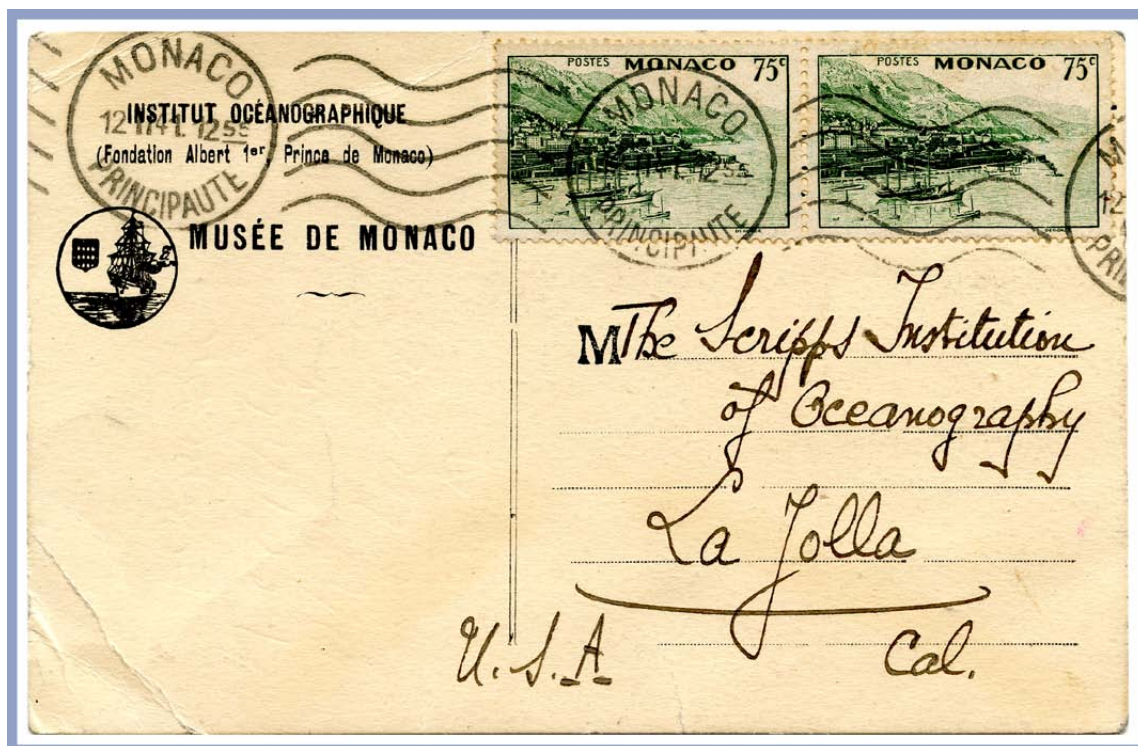 MONACO
12 41 12 55
PRINCIPAUTE
INSTITUT OCÉANOGRAPHIQUE
(Fondation Albert 1er, Prince de Monaco)
MUSÉE DE MONACO
POSTES MONACO 75c
POSTES MONACO 75c
MONACO
PRINCIPAUTE
M The Scripps Institution
of Oceanography
La Jolla
U.S.A Cal.